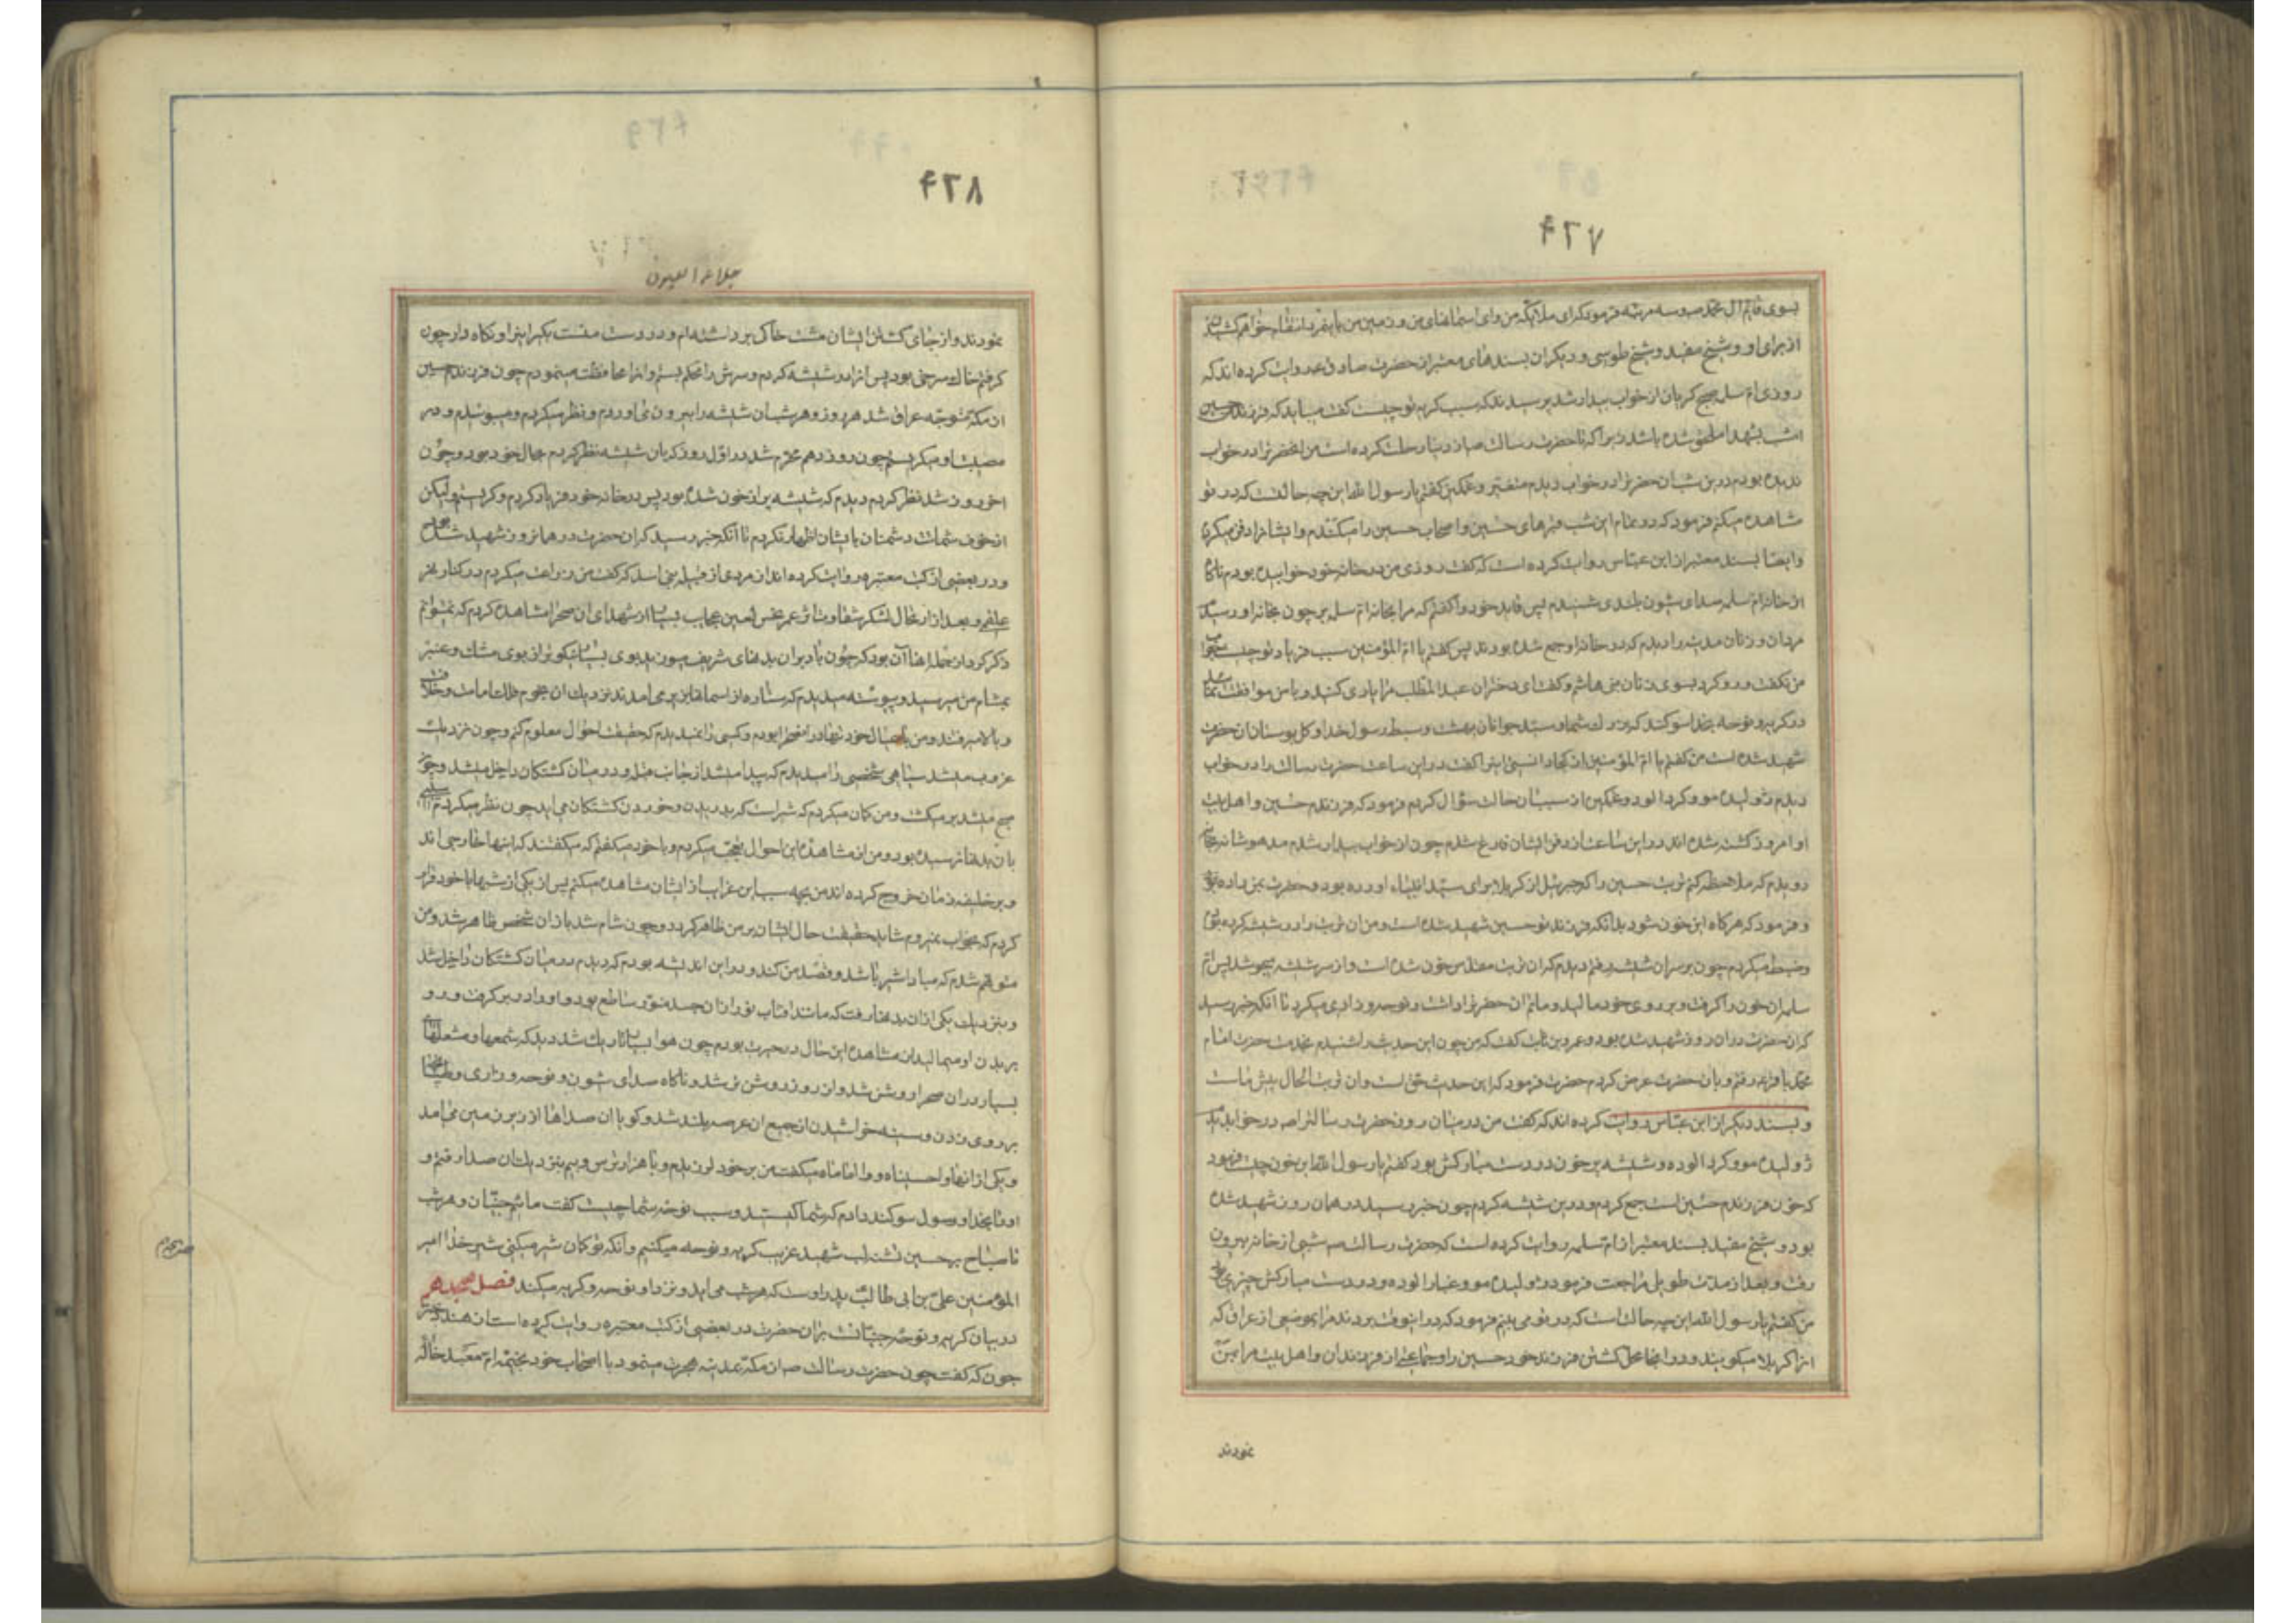 ۴۲۷
بسوی قایم ال محمد ص و سه مرتبه فرمود که ای ملائکه من و ای اسمانهای من و زمین من باینمرد انتقام خواهم کشید
از برای او و شیخ مفید و شیخ طوسی و دیگران بسندهای معتبر از حضرت صادق ع روایت کرده اند که
روزی ام سلمه صبح گریان از خواب بیدار شد پرسیدند که سبب گریه تو چیست گفت میباید که فرزندم حسین
امشب شهدا ملحق شده باشد زیرا که تا حضرت رسالت ص از دنیا رحلت کرده است من انحضرترا در خواب
ندیده بودم درین شب ان حضرترا در خواب دیدم متغیر و غمگین گفتم یا رسول الله این چه حالتست که در تو
مشاهده میکنم فرمود که در تمام این شب قبرهای حسین و اصحاب حسین را میکندم و ایشانرا دفن میکردم
وایضا بسند معتبر از ابن عباس روایت کرده است که گفت روزی من در خانه خود خوابیده بودم ناگاه
از خانه ام سلمه صدای شیون بلندی شنیدم پس قاید خود را گفتم که مرا بخانه ام سلمه بر چون بخانه او رسیدم
مردان و زنان مدینه را دیدم که در خانه او جمع شده بودند پس گفتم یا ام المؤمنین سبب فریاد تو چیست جواب
من نگفت و رو کرد بسوی زنان بنی هاشم و گفت ای دختران عبدالمطلب مرا یاری کنید و با من موافقت نمایید
در گریه و نوحه بخدا سوگند که بزرگ شما و سید جوانان بهشت و سبط رسول خدا و گل بوستان ان حضرت
شهید شده است من گفتم یا ام المؤمنین از کجا دانستی اینرا گفت در این ساعت حضرت رسالت را در خواب
دیدم ژولیده مو و گرد الود و غمگین از سبب ان حالت سؤال کردم فرمود که فرزندم حسین و اهل بیت
او امروز کشته شده اند و در این ساعت از دفن ایشان فارغ شدم چون از خواب بیدار شدم مدهوشانه بخانه
دویدم که ملاحظه کنم تربت حسین را که جبرئیل از کربلا برای سید انبیاء اورده بود و حضرت بمن داده بود
و فرمود که هرگاه این خون شود بدانکه فرزند تو حسین شهید شده است و من ان تربت را در شیشه کرده بودم
و ضبط میکردم چون بر سر ان شیشه رفتم دیدم که ان تربت مقدس خون شده است و از سر شیشه میجوشد پس ام
سلمه ان خون را گرفت و بر روی خود مالید و ماتم ان حضرترا داشت و نوحه و زاری میکرد تا انکه خبر رسید
که ان حضرت در ان روز شهید شده بود و عمرو بن ثابت گفت که من چون این حدیث را شنیدم بخدمت حضرت امام
محمد باقر ع رفتم و بان حضرت عرض کردم حضرت فرمود که این حدیث حق است و ان تربت الحال پیش ماست
و بسند دیگر از ابن عباس روایت کرده اند که گفت من در میان روز حضرت رسالترا ص در خواب دیدم
ژولیده مو و گرد الوده و شیشه پر خون در دست مبارکش بود گفتم یا رسول الله این خون چیست فرمود
که خون فرزندم حسین است جمع کردم و درین شیشه کردم چون خبر رسید در همان روز شهید شده
بود و شیخ مفید بسند معتبر از ام سلمه روایت کرده است که حضرت رسالت ص شبی از خانه بیرون
رفت و بعد از مدت طویل مراجعت فرمود ژولیده مو و غبار الوده و در دست مبارکش چیزی بود
من گفتم یا رسول الله این چه حالت است که در تو می بینم فرمود که در اینوقت بردند مرا بموضعی از عراق که
انرا کربلا میگویند و در انجا محل کشتن فرزند خود حسین را و جماعتی از فرزندان و اهل بیت مرا بمن
نمودند
۴۲۸
جلاء العیون
نمودند و از جای کشتن ایشان مشت خاک برداشته ام و در دست منست بگیر اینرا و نگاه دار چون
گرفتم خاک سرخی بود پس انرا در شیشه کردم و سرش را محکم بستم و انرا محافظت مینمودم چون فرزندم حسین
از مکه متوجه عراق شد هر روز و هر شب ان شیشه را بیرون می اوردم و نظر میکردم و میبوئیدم و در
مصیبت او میگریستم چون روز دهم محرم شد در اول روز که بان شیشه نظر کردم بحال خود بود و چون
اخر روز شد نظر کردم دیدم که شیشه پر از خون شده بود پس در خانه خود فریاد کردم و گریستم و لیکن
از خوف شماتت دشمنان بایشان اظهار نکردم تا آنکه خبر رسید که ان حضرت در همانروز شهید شده بود
و در بعضی از کتب معتبره روایت کرده اند از مردی از قبیله بنی اسد که گفت من زراعت میکردم در کنار نهر
علقمه و بعد از ارتحال لشکر شقاوت اثر عمر نحس لعین عجایب بسیار از شهدای ان صحرا مشاهده کردم که نمیتوانم
ذکر کرد از جمله انها آن بود که چون باد بر ان بدنهای شریف میوزید بوی بسیار نیکوتر از بوی مشک و عنبر
بمشام من میرسید و پیوسته میدیدم که ستاره از اسمانها بزیر می امدند نزدیک ان نجوم فلک امامت و خلافت
و بالا میرفتند و من با عیال خود تنها در انصحرا بودم و کسی را نمیدیدم که حقیقت احوال معلوم کنم و چون نزدیک
غروب میشد سیاهی شخصی را میدیدم که پیدا میشد از جانب قبله و در میان کشتگان داخل میشد و چون
صبح میشد بر میگشت و من گمان میکردم که شیر است که بدریدن و خوردن کشتگان می اید چون نظر میکردم
بان بدنها نرسیده بود و من از مشاهده این احوال تعجب میکردم و با خود میگفتم که میگفتند که اینها خارجی اند
و بر خلیفه زمان خروج کرده اند من بچه سبب این غرایب از ایشان مشاهده میکنم پس از یکی از شبها با خود قرار
کردم که بخواب نمیروم شاید حقیقت حال ایشان بر من ظاهر گردد و چون شام شد باز ان شخص ظاهر شد و من
متوهم شدم که مبادا شیر باشد و قصد من کند و در این اندیشه بودم که دیدم در میان کشتگان داخل شد
و بنزدیک یکی از ان بدنها رفت که مانند افتاب نور از ان جسد منور ساطع بود و او را در بر گرفت و رو
بر بدن او میمالید از مشاهده این حال در حیرت بودم چون هوا بسیار تاریک شد دیدم که شمعها و مشعلها
بسیار در ان صحرا روشن شد و از روز روشن تر شد و ناگاه صدای شیون و نوحه و زاری و طپانچه
بر روی زدن و سینه خراشیدن از جمیع ان عرصه بلند شد و گویا ان صداها از زیر زمین می امد
و یکی از انها واحسیناه و وا اماماه میگفت من بر خود لرزیدم و با هزار ترس و بیم بنزدیک ان صدا رفتم و
او را بخدا و رسول سوگند دادم که شما کیستید و سبب نوحه شما چیست گفت مائیم جنیان و هر شب
تا صباح بر حسین تشنه لب شهید غریب گریه و نوحه میکنیم و آنکه تو گمان شیر میکنی شیر خدا امیر
المؤمنین علی بن ابی طالب پدر اوست که هر شب می اید و نزد او نوحه و گریه میکند فصل هجدهم
در بیان گریه و نوحه جنیانست بران حضرت در بعضی از کتب معتبره روایت کرده است از هند دختر
جون که گفت چون حضرت رسالت ص از مکه بمدینه هجرت مینمود با اصحاب خود بخیمه ام معبد خاله